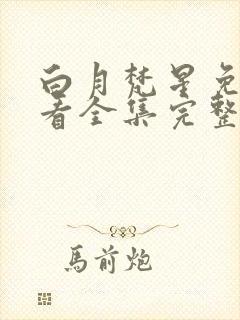 白月梵星免
看全集完整
馬前炮